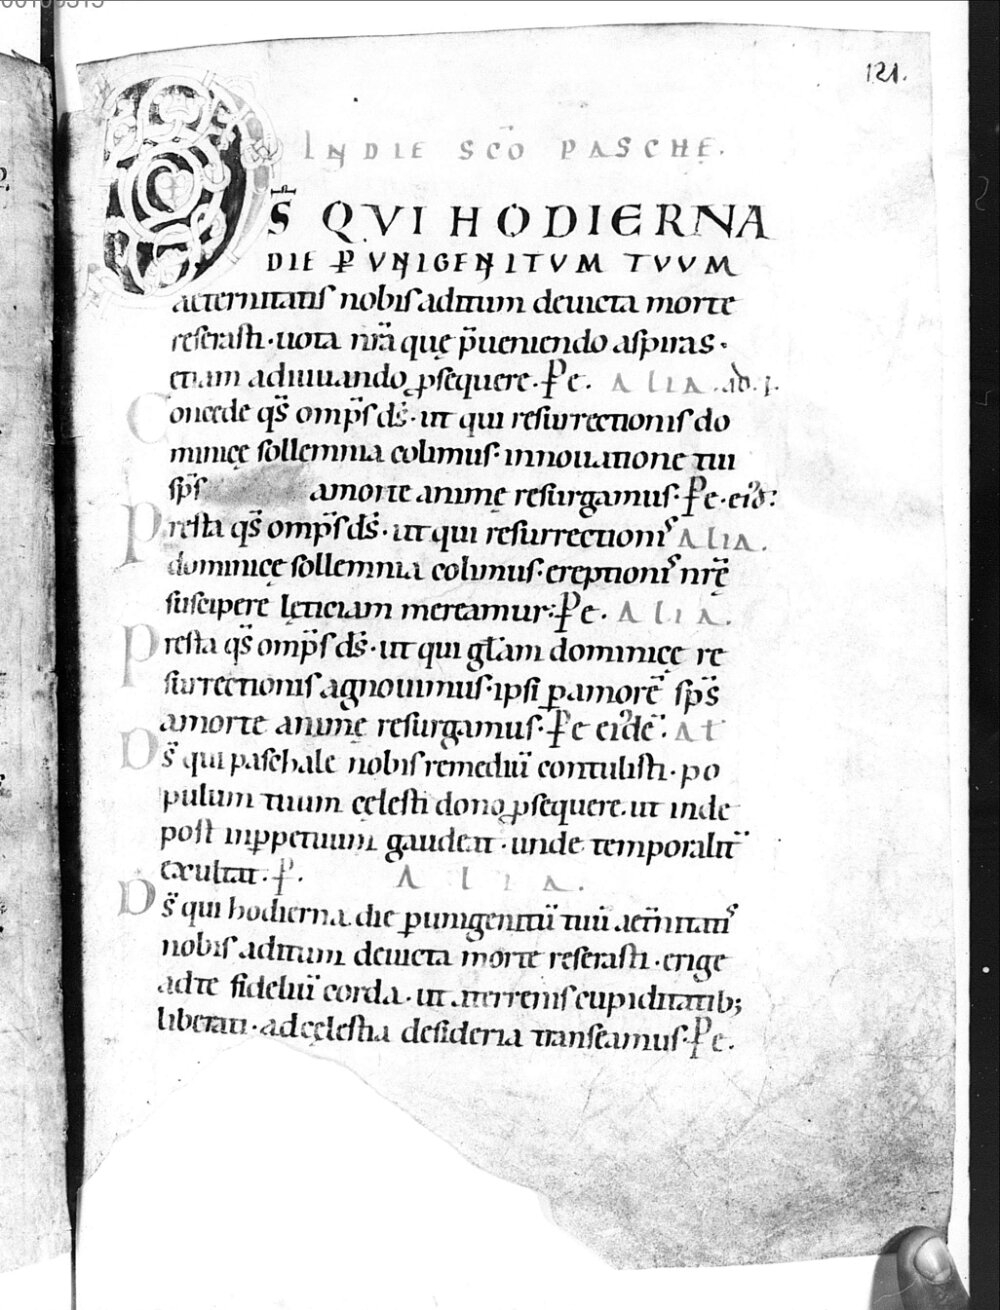 121.
IN DIE SC̄O PASCHE.
DS̄ QVI HODIERNA
DIE P̱ VNIGENITVM TVVM
aeternitatis nobis aditum deuicta morte
reserasti · uota nr̄a quę p̄ueniendo aspiras ·
etiam adiuuando ꝓsequere · Pe. ALIA. ad .j.
Concede qs̄ omp̄s ds̄ · ut qui resurrectionis do
minicę sollemnia colimus · innouatione tui
sp̄s amorte animę resurgamus · Pe · eiꝰd:
Presta qs̄ omp̄s ds̄ · ut qui resurrectionis ALIA.
dominicę sollemnia colimus · ereptionis nrę̄
suscipere lęticiam mereamur : Pe. ALIA.
Presta qs̄ omp̄s ds̄ · ut qui gl̄am dominicę re
surrectionis agnouimus · ipsi ꝑamorē sp̄s
amorte animę resurgamus · Pe eiꝰdē. AL
Ds̄ qui paschale nobis remediū contulisti · po
pulum tuum cęlesti dono ꝓsequere · ut inde
post inꝑpetuum gaudeat · unde temporalit̄
exultat · P. ALIA.
Ds̄ qui hodierna die ꝑunigenitū tuū aet̄nitatis
nobis aditum deuicta morte reserasti · erige
adte fideliū corda · ut aterrenis cupiditatib;
liberati · ad cęlestia desideria transeamus · Pe.